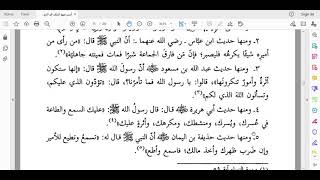 ٢ـ ومنها حديث ابن عبَّاس ـ رضي الله عنهما ـ: أنَّ النبي ﷺ قال: «من رأى من
أميره شيئًا يكرهُه فليصبر؛ فإن مَن فارقَ الجماعةَ شبرًا فمات فميتته جاهليَّة»
٣ـ ومنها حديث عبد الله بن مسعود ﷺ أنَّ رسولَ الله ﷺ قال: «إنها ستكون
أثرةٌ وأمورٌ تنكرونها»، قالوا: يا رسول الله فما تأمُرُنا؟ قال: «تؤدّون الذي عليكم،
وتسألون الله الذي لكم»
٤ـ ومنها حديث أبي هريرة قال: قال رسول الله ﷺ: «عليك السمع والطاعة
في عُسرك، ويُسرك، ومنشطك، ومكرهك، وأثرة عليك»
٥ـ ومنها حديث حذيفة بن اليمان أنَّ النبي ﷺ قال له: «تسمعُ وتطيع للأمير
وإن ضرب ظهرك وأخذ مالك؛ فاسمع وأطع»